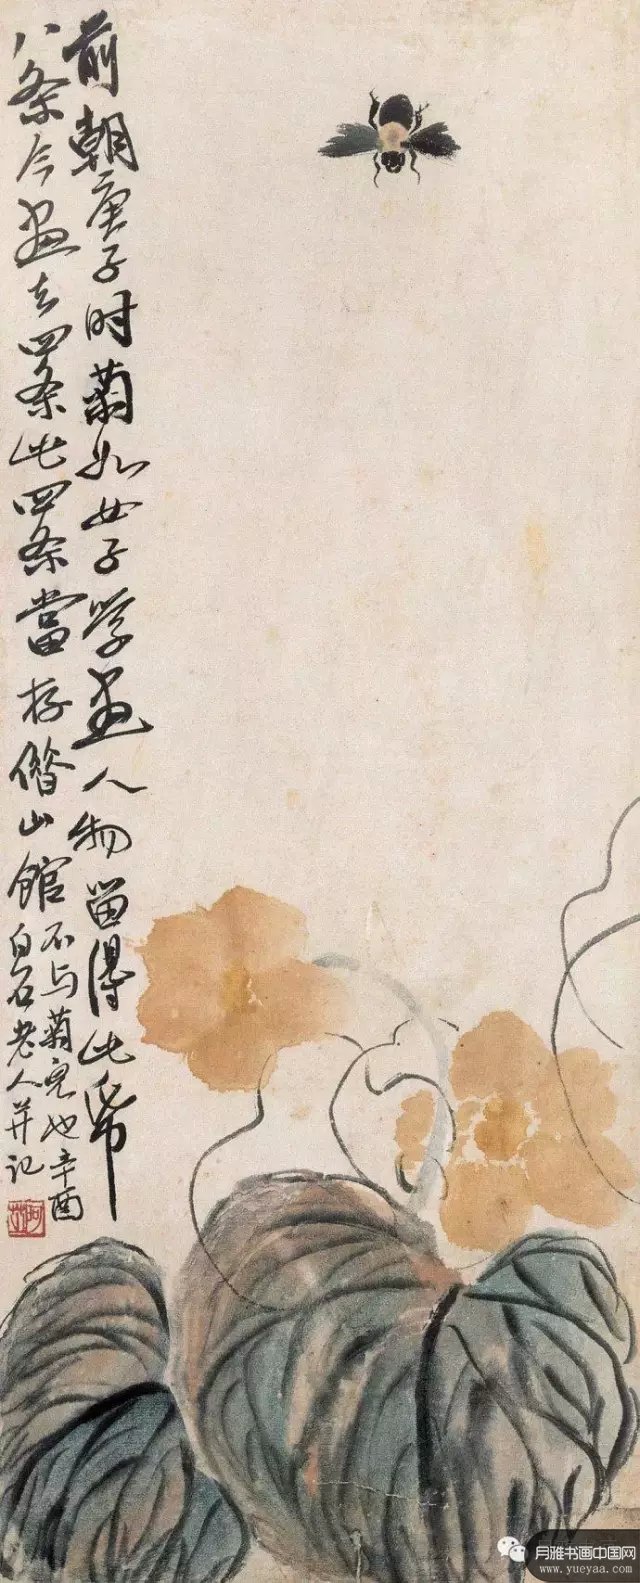 前朝庚子时菊如女子学画人物留得此帋
八条今画去四条此四条當存借山館
不与菊儿也辛酉
白石老人并记
月雅书画中国网
www.yueyaa.com